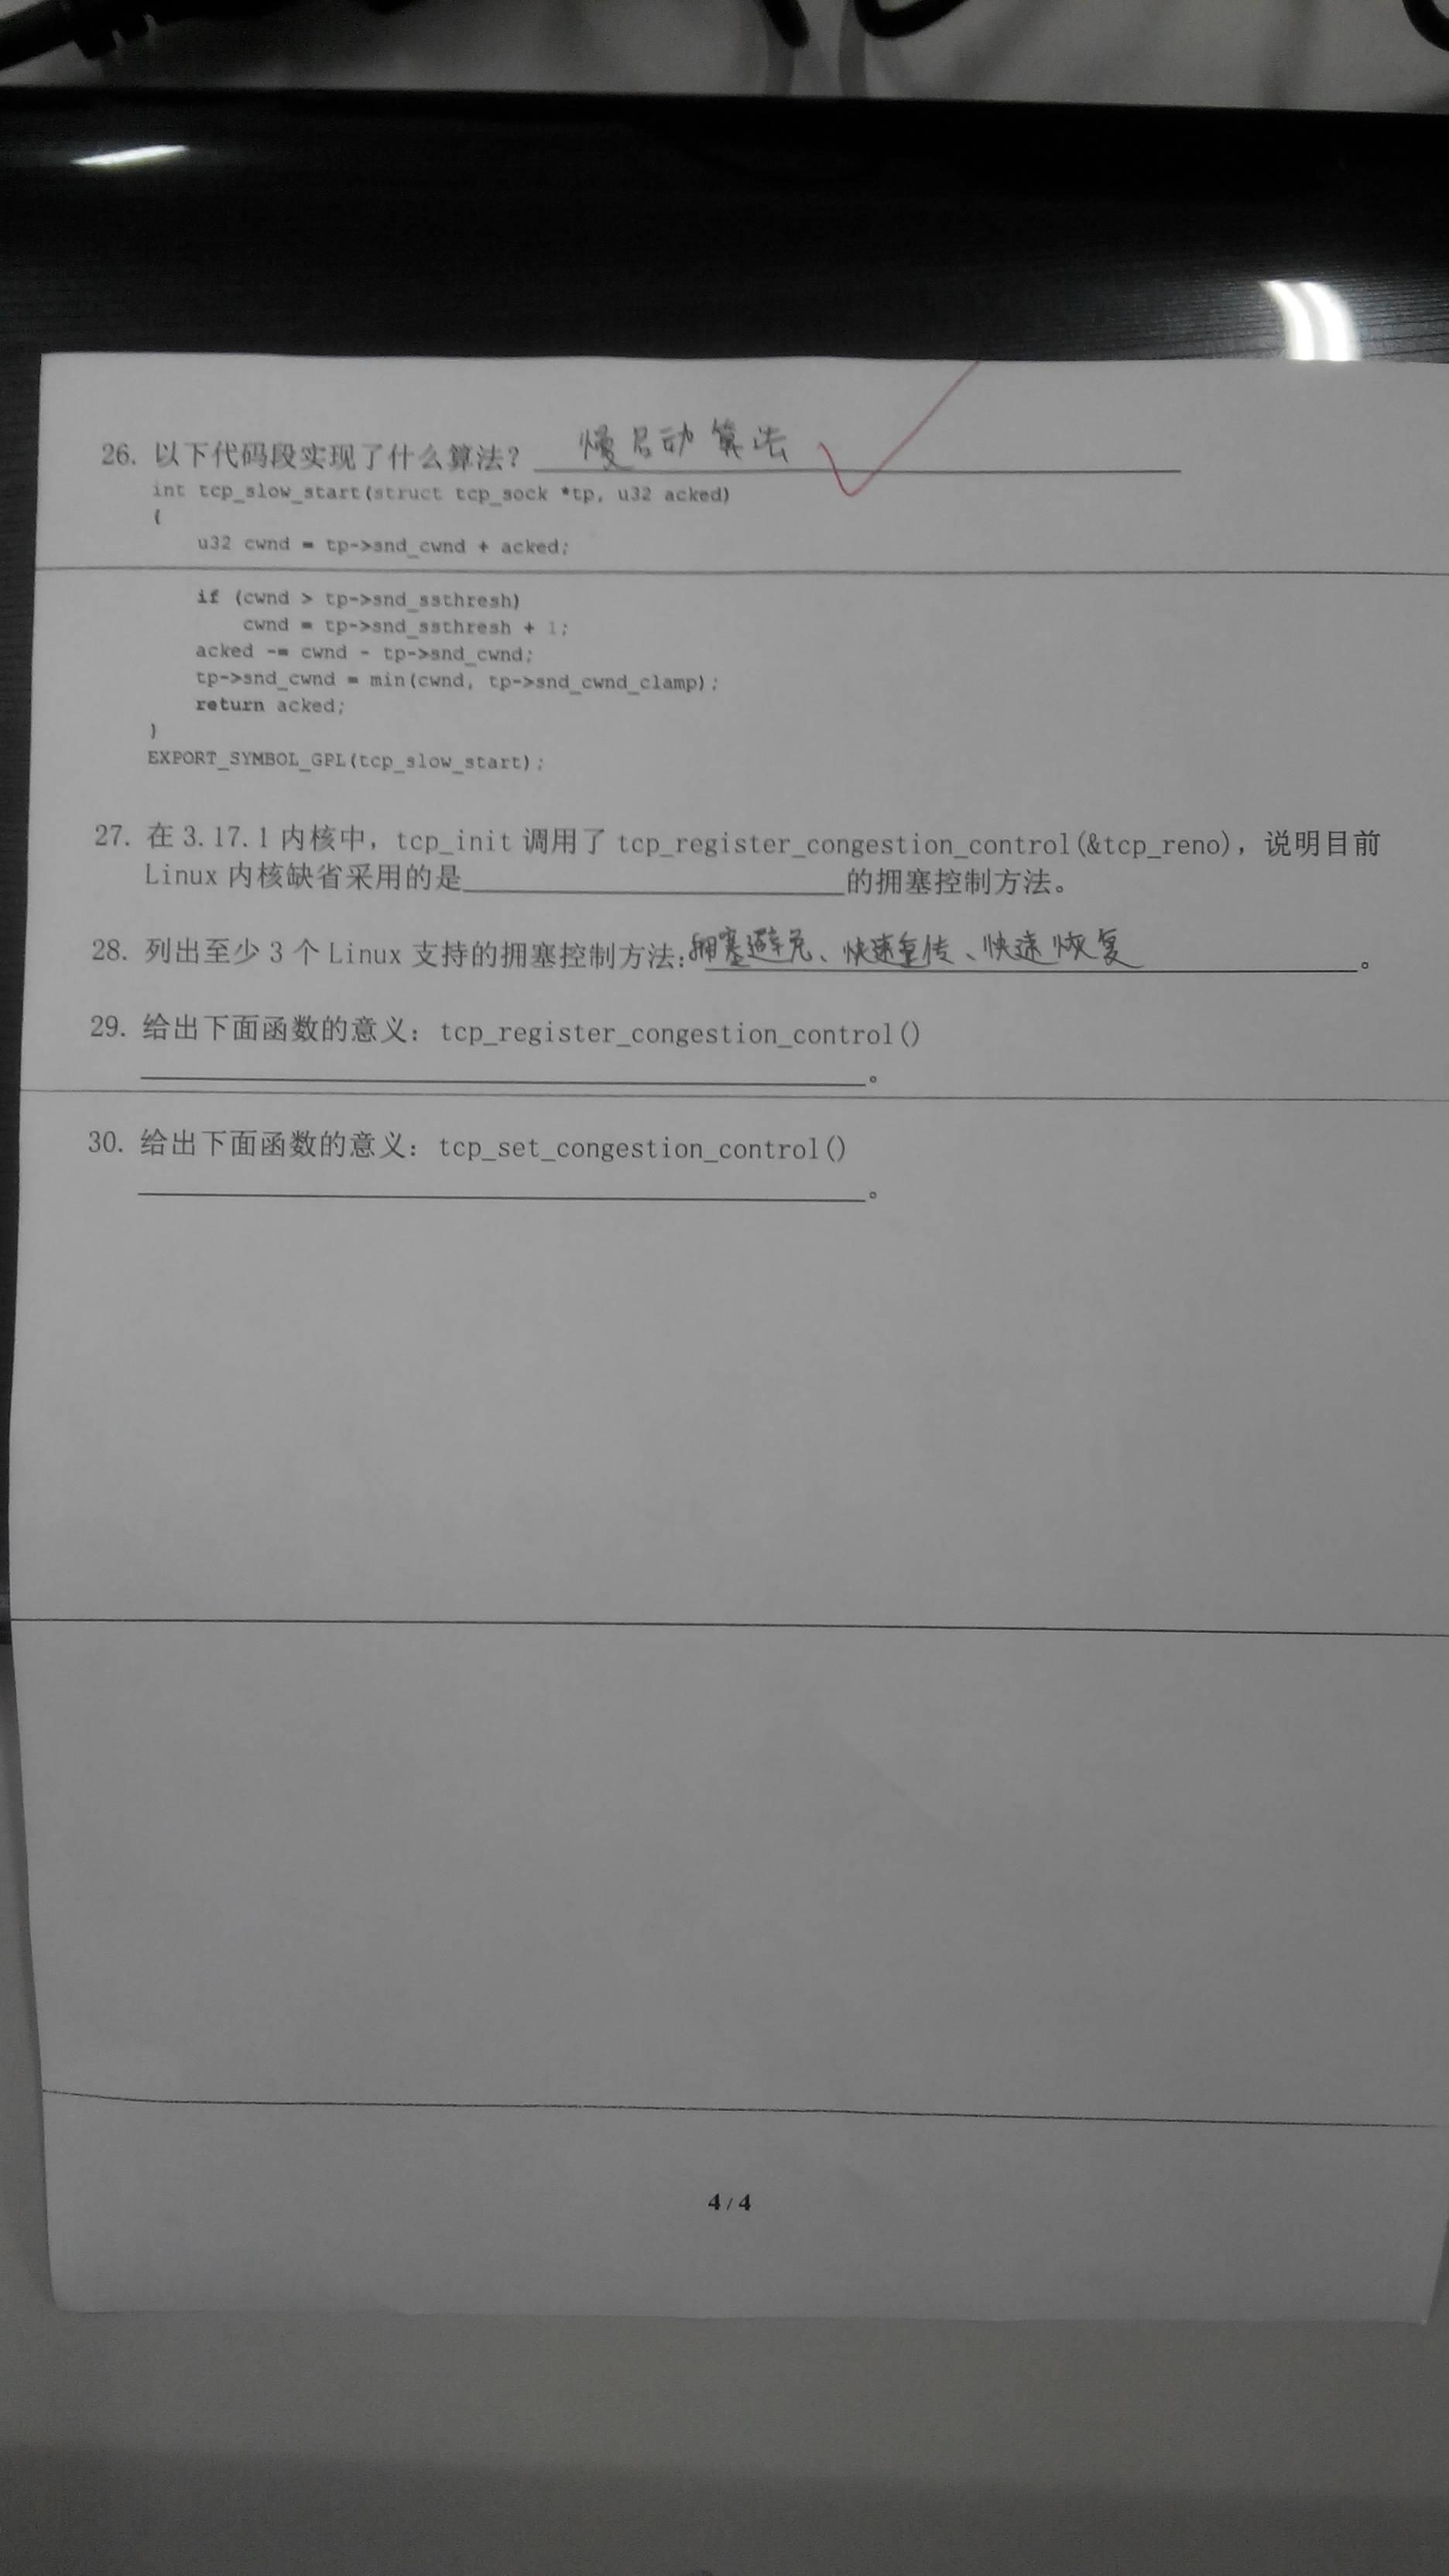 26. 以下代码段实现了什么算法? 慢启动算法
int tcp_slow_start(struct tcp_sock *tp, u32 acked)
{
u32 cwnd = tp->snd_cwnd + acked;
if (cwnd > tp->snd_ssthresh)
cwnd = tp->snd_ssthresh + 1;
acked -= cwnd - tp->snd_cwnd;
tp->snd_cwnd = min(cwnd, tp->snd_cwnd_clamp);
return acked;
}
EXPORT_SYMBOL_GPL(tcp_slow_start);
27. 在 3.17.1 内核中，tcp_init 调用了 tcp_register_congestion_control(&tcp_reno)，说明目前
Linux 内核缺省采用的是____的拥塞控制方法。
28. 列出至少 3 个 Linux 支持的拥塞控制方法: 拥塞避免、快速重传、快速恢复。
29. 给出下面函数的意义：tcp_register_congestion_control()
____。
30. 给出下面函数的意义：tcp_set_congestion_control()
____。
4 / 4